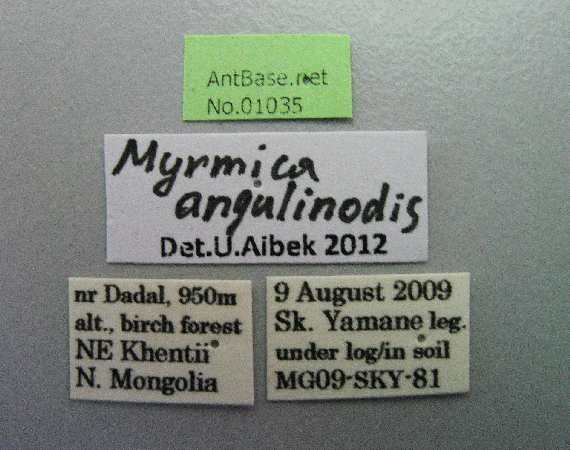 AntBase.net
No.01035
Myrmica
angulinodis
Det.U.Aibek 2012
nr Dadal, 950m
alt., birch forest
NE Khentii
N. Mongolia
9 August 2009
Sk. Yamane leg.
under log/in soil
MG09-SKY-81